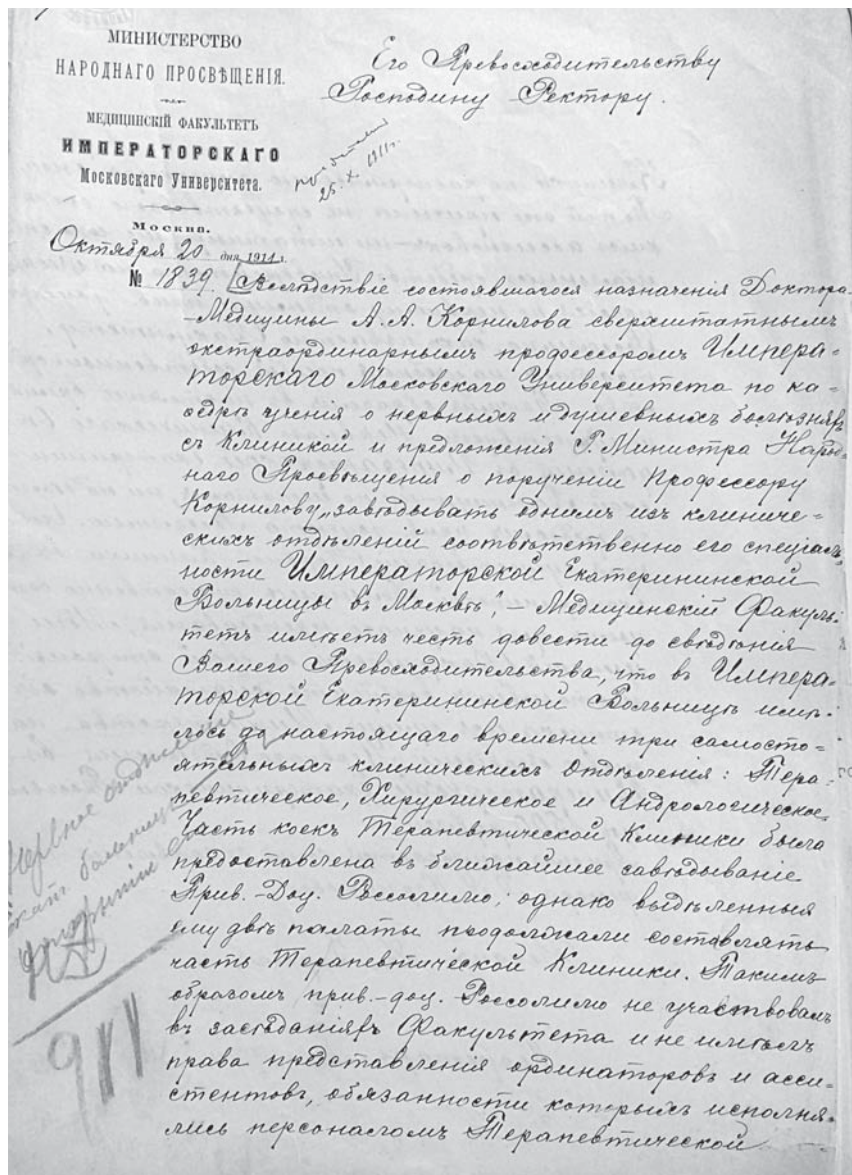 МИНИСТЕРСТВО
НАРОДНАГО ПРОСВѢЩЕНІЯ.
МЕДИЦИНСКІЙ ФАКУЛЬТЕТЪ
ИМПЕРАТОРСКАГО
Московскаго Университета.
Москва.
Октября 20 дня 1911 г.
№ 1839.
Его Превосходительству
Господину Ректору.
25. X. 1911 г.
Вслѣдствіе состоявшагося назначенія Доктора
Медицины А. А. Корнилова сверхштатнымъ
экстраординарнымъ профессоромъ Импера-
торскаго Московскаго Университета по ка-
ѳедрѣ ученія о нервныхъ и душевныхъ болѣзняхъ
съ Клиникой и предложенія Г. Министра Народ-
наго Просвѣщенія о порученіи Профессору
Корнилову „завѣдывать однимъ изъ клиниче-
скихъ отдѣленій соотвѣтственно его спеціаль-
ности Императорской Екатерининской
Больницы въ Москвѣ“, – Медицинскій Факуль-
тетъ имѣетъ честь довести до свѣдѣнія
Вашего Превосходительства, что въ Импера-
торской Екатерининской Больницѣ имѣ-
лось до настоящаго времени три самосто-
ятельныхъ клиническихъ отдѣленія: Тера-
певтическое, Хирургическое и Андрологическое.
Часть коекъ Терапевтической Клиники была
предоставлена въ ближайшее завѣдываніе
Прив.-Доц. Россолимо; однако выдѣленныя
ему двѣ палаты продолжали составлять
часть Терапевтической Клиники. Такимъ
образомъ прив.-доц. Россолимо не участвовалъ
въ засѣданіяхъ Факультета и не имѣлъ
права представленія ординаторовъ и асси-
стентовъ, обязанности которыхъ исполня-
лись персоналомъ Терапевтической
Нервное отдѣленіе
911